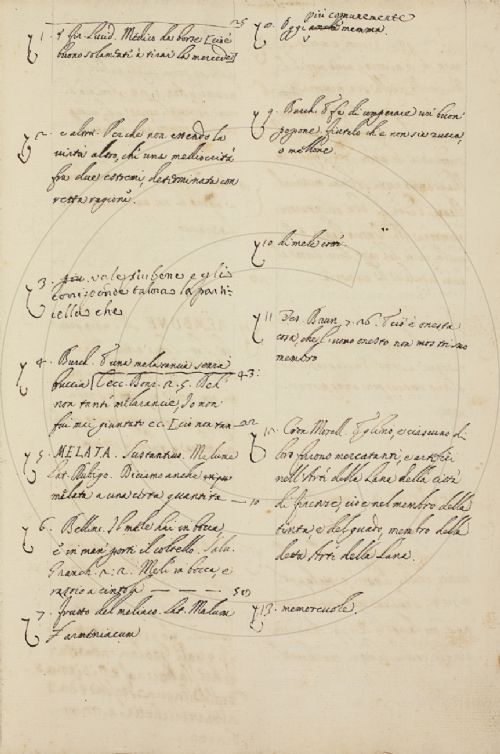 1. Medico da borse [cioè
buono solamente à tirar la mercede]
2. e altri. Perche non essendo la
virtù altro, chi una mediocrità
fra due estremi, determinata con
retta ragione.
3. più. vale sibene e gli
corrisponde talora la parti-
cella che
4. Burch. una melarancia senza
buccia 43:
non tanti melarancie, Io non
fui mai giuntati ec. [cio non tan-
5. MELATA. Sustantivo. Melume
Lat. Rubigo. Diciamo anche
melata a una certa quantita — 10
6. Bellinc. Il mele hai in bocca
è in man porti il coltello. Salv.
Granch. 2: 2. Mel in bocca, e
rasoio a cintola — — —
7. frutto del meliaco. Lat. Malum
Armeniacum
25
8. più comunemente
Oggi mamma.
9. Burch. Fa di comperare un buon
popone, fiutelo ch'e non sia zucca,
o mellone
10 di mele
11 7. 26. cio è onesta
cosa, che l'uomo onesto non mostri suo
membro
12. Cron. Morell. e ciascuno di
loro furono mercatanti, e artefici
nell'Arti della Lana della città
di firenze, cioe nel membro della
tinta, e del guado, membro della
detta Arti della Lana.
13. memorevole.